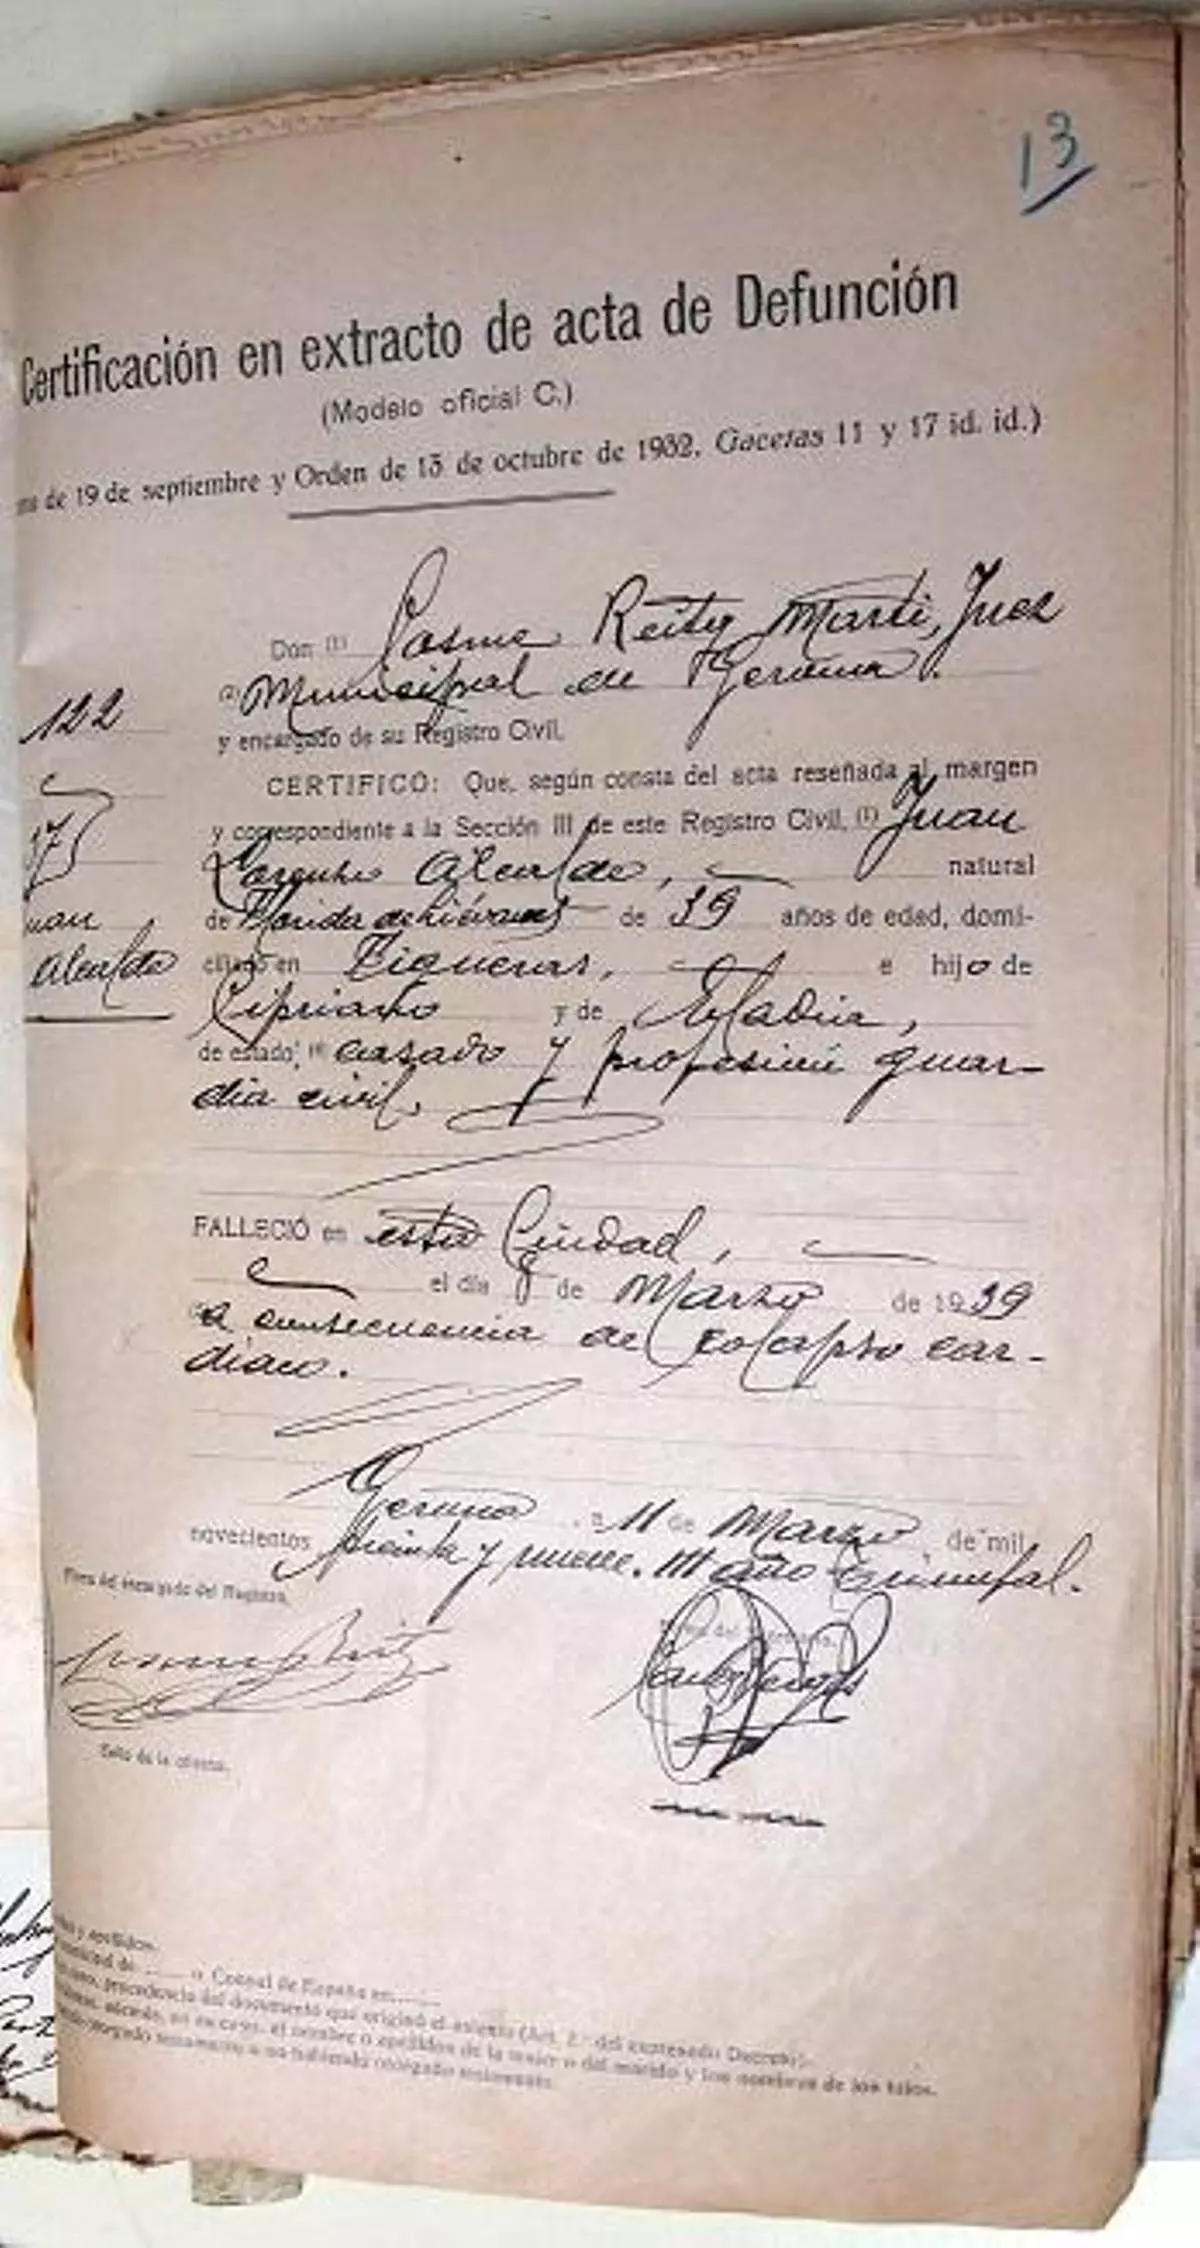 13
Certificación en extracto de acta de Defunción
(Modelo oficial C.)
de 19 de septiembre y Orden de 13 de octubre de 1932. Gacetas 11 y 17 id. id.)
Don (1) Cosme Marti, Juez
(2) Municipal de Gerona.
122
y encargado de su Registro Civil.
CERTIFICO: Que, según consta del acta reseñada al margen
y correspondiente a la Sección III de este Registro Civil, (1) Juan
Alcalde, natural
uan
de de 39 años de edad, domi-
Alcalde
ciliado en Figueras, e hijo de
Cipriano y de Eladia,
de estado, (4) casado y profesión guar-
dia civil.
FALLECIÓ en esta Ciudad,
el día 8 de Marzo de 1939
a consecuencia de colapso car-
diaco.
Gerona a 11 de Marzo de mil
novecientos treinta y nueve. III año Triunfal.
Firma del encargado del Registro,
Sello de la oficina.
y apellidos.
o Consul de España en
procedencia del documento que originó el asiento (Art. 2.º del expresado Decreto).
además, en su caso, el nombre o apellidos de la mujer o del marido y los nombres de los hijos.
otorgado testamento o no habiendo otorgado testamento.